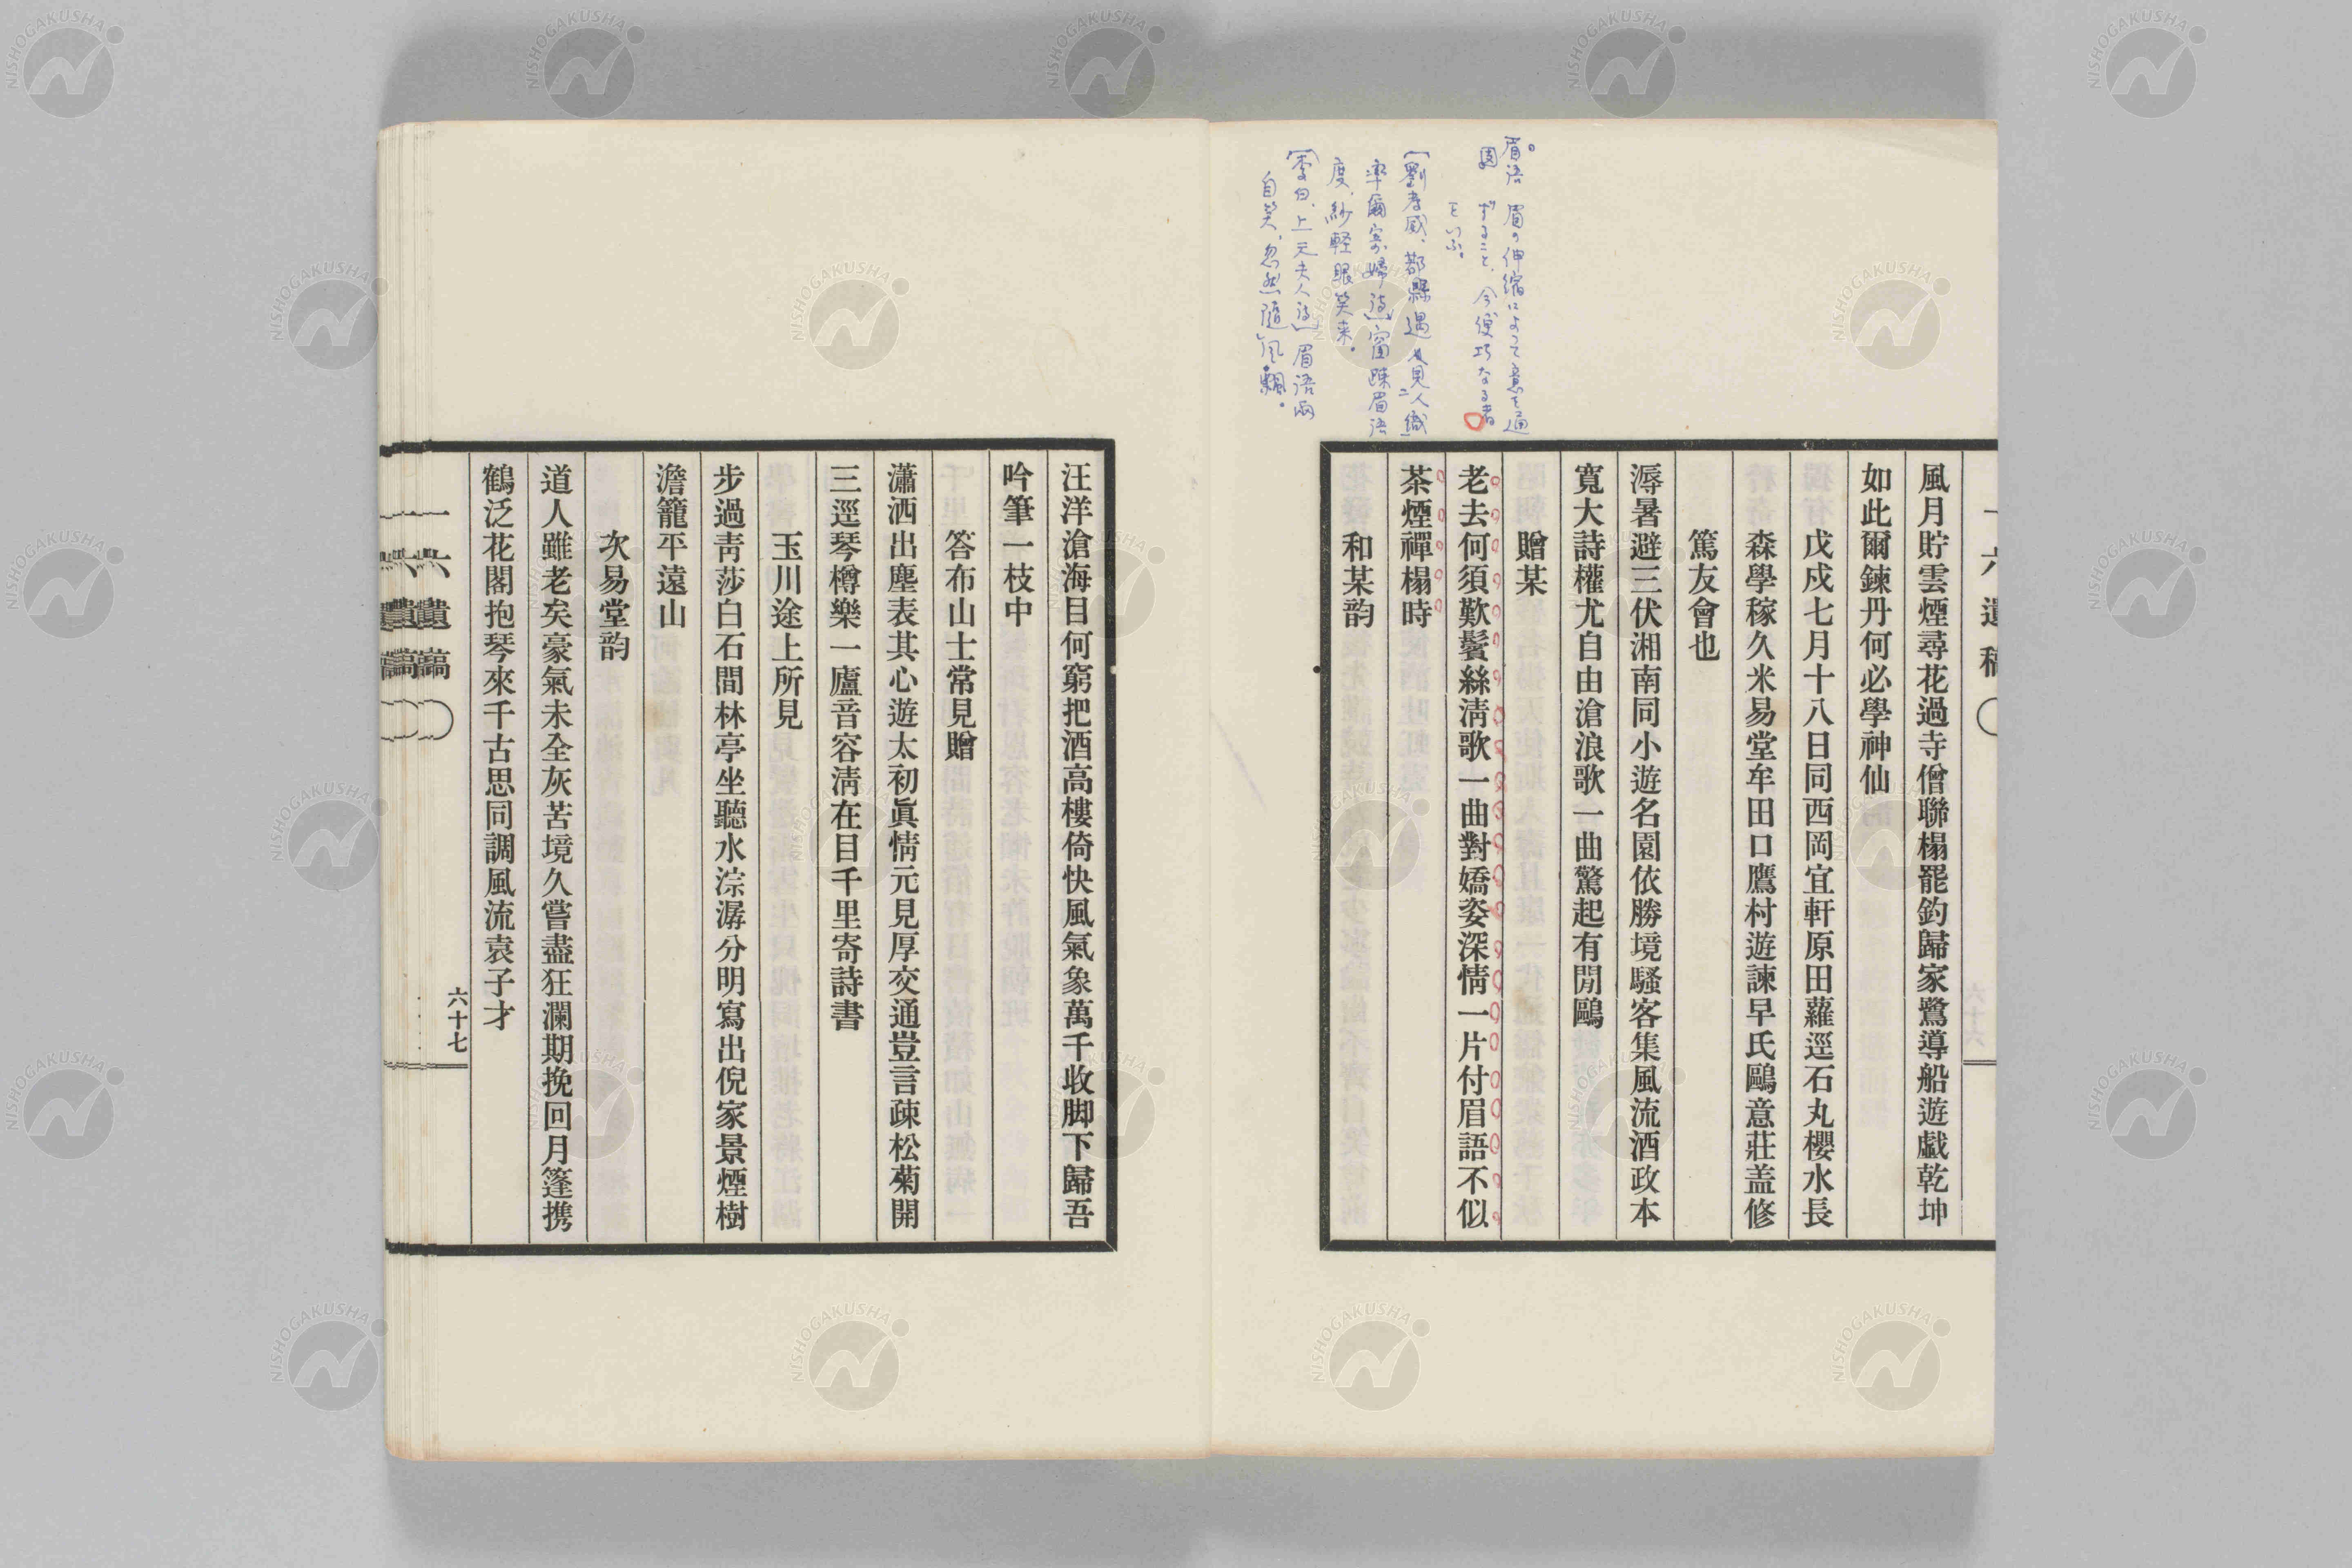 眉語 眉の伸縮によつて意を通
ずること、今、便巧なる者
をいふ。
劉孝威、都縣遇見人織
率爾寄婦詩 窗疎眉語
度、紗軽眼笑来。
李白、上元夫人詩 眉語両
自笑、忽然随風飄。
一六遺稿
風月貯雲煙尋花過寺僧聯榻罷釣歸家鷺導船遊戯乾坤
如此爾鍊丹何必學神仙
戊戌七月十八日同西岡宜軒原田蘿逕石丸櫻水長
森學稼久米易堂牟田口鷹村遊諫早氏鷗意莊盖修
篤友會也
溽暑避三伏湘南同小遊名園依勝境騷客集風流酒政本
寬大詩權尤自由滄浪歌一曲驚起有閒鷗
贈某
老去何須歎鬢絲淸歌一曲對嬌姿深情一片付眉語不似
茶煙禪榻時
和某韵
汪洋滄海目何窮把酒高樓倚快風氣象萬千收脚下歸吾
吟筆一枝中
答布山士常見贈
瀟洒出塵表其心遊太初眞情元見厚交通豈言疎松菊開
三逕琴樽樂一廬音容淸在目千里寄詩書
玉川途上所見
步過靑莎白石間林亭坐聽水淙潺分明寫出倪家景煙樹
澹籠平遠山
次易堂韵
道人雖老矣豪氣未全灰苦境久嘗盡狂瀾期挽回月篷携
鶴泛花閣抱琴來千古思同調風流袁子才
一六遺稿
六十七
NISHOGAKUSHA